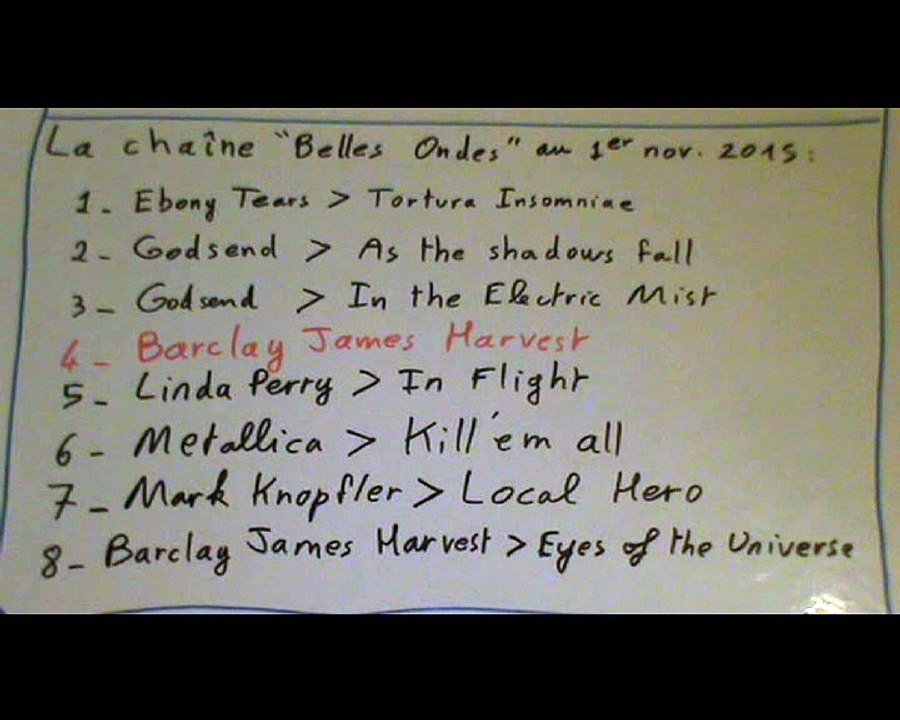 La chaîne "Belles Ondes" au 1er nov. 2015:
1- Ebony Tears > Tortura Insomniae
2- Godsend > As the shadows fall
3- Godsend > In the Electric Mist
4- Barclay James Harvest
5- Linda Perry > In Flight
6- Metallica > Kill'em all
7- Mark Knopfler > Local Hero
8- Barclay James Harvest > Eyes of the Universe